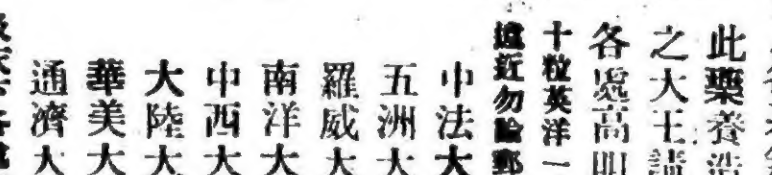 此藥養
之大王請
各處高明
十粒英洋一
遠近勿論郵
中法大
五洲大
羅威大
南洋大
中西大
大陸大
華美大
通濟大